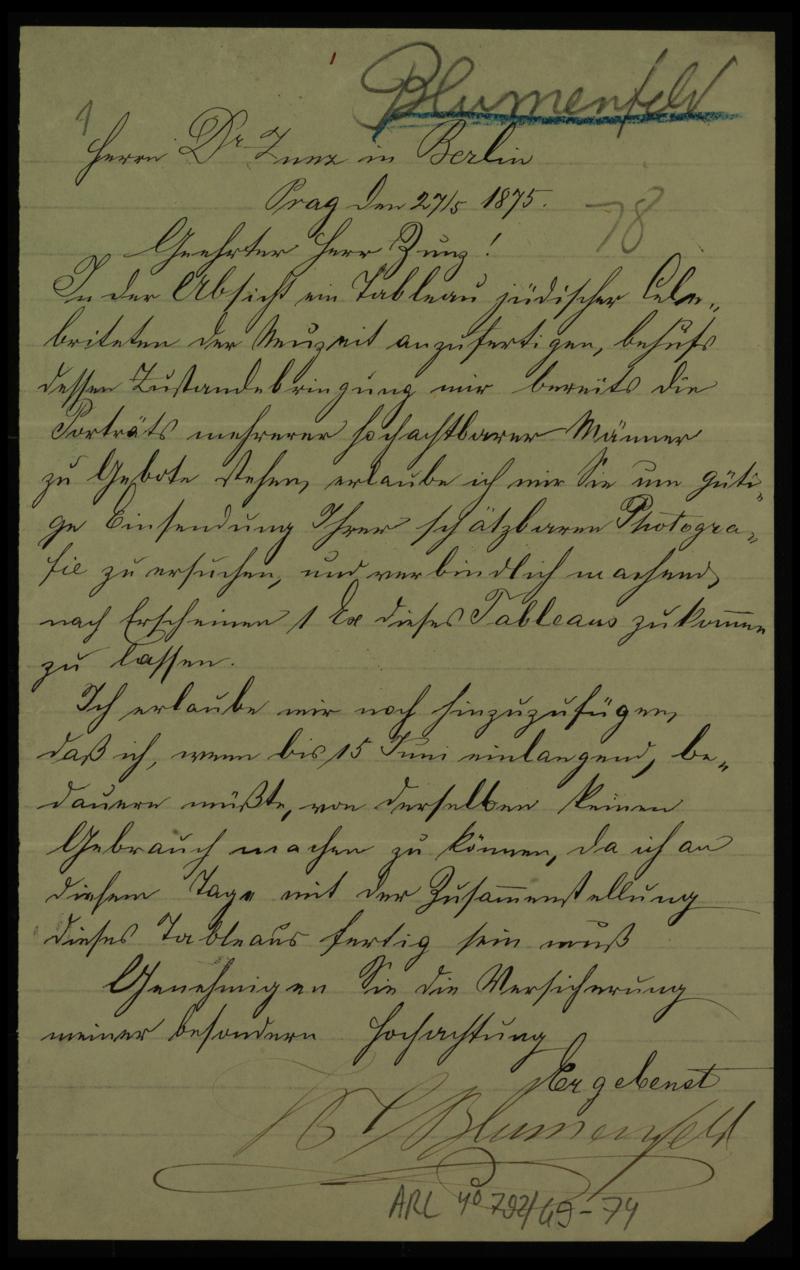 Blumenfeld
1
Herrn Dr Zunz in Berlin
Prag den 27/5 1875.
78
Geehrter Herr Zunz!
In der Absicht ein Tableau jüdischer Cele„
briteten der Neuzeit anzufertigen, behufs
dessen Zustandebringung mir bereits die
Porträts mehrerer hochachtbarer Männer
zu Gebote stehen, erlaube ich mir Sie um güti„
ge Einsendung Ihrer schätzbaren Photogra„
fie zu ersuchen, und verbindlich machend,
nach Erscheinen 1 Ex dieses Tableaus zukommen
zu lassen.
Ich erlaube mir noch hinzuzufügen,
daß ich, wenn bis 15 Juni einlangend, be„
dauern müßte, von derselben keinen
Gebrauch machen zu können, da ich an
diesem Tage mit der Zusammenstellung
dieses Tableaus fertig sein muß
Genehmigen Sie die Versicherung
meiner besondern Hochachtung
Ergebenst
Blumenfeld
ARC 4° 792/G9-74